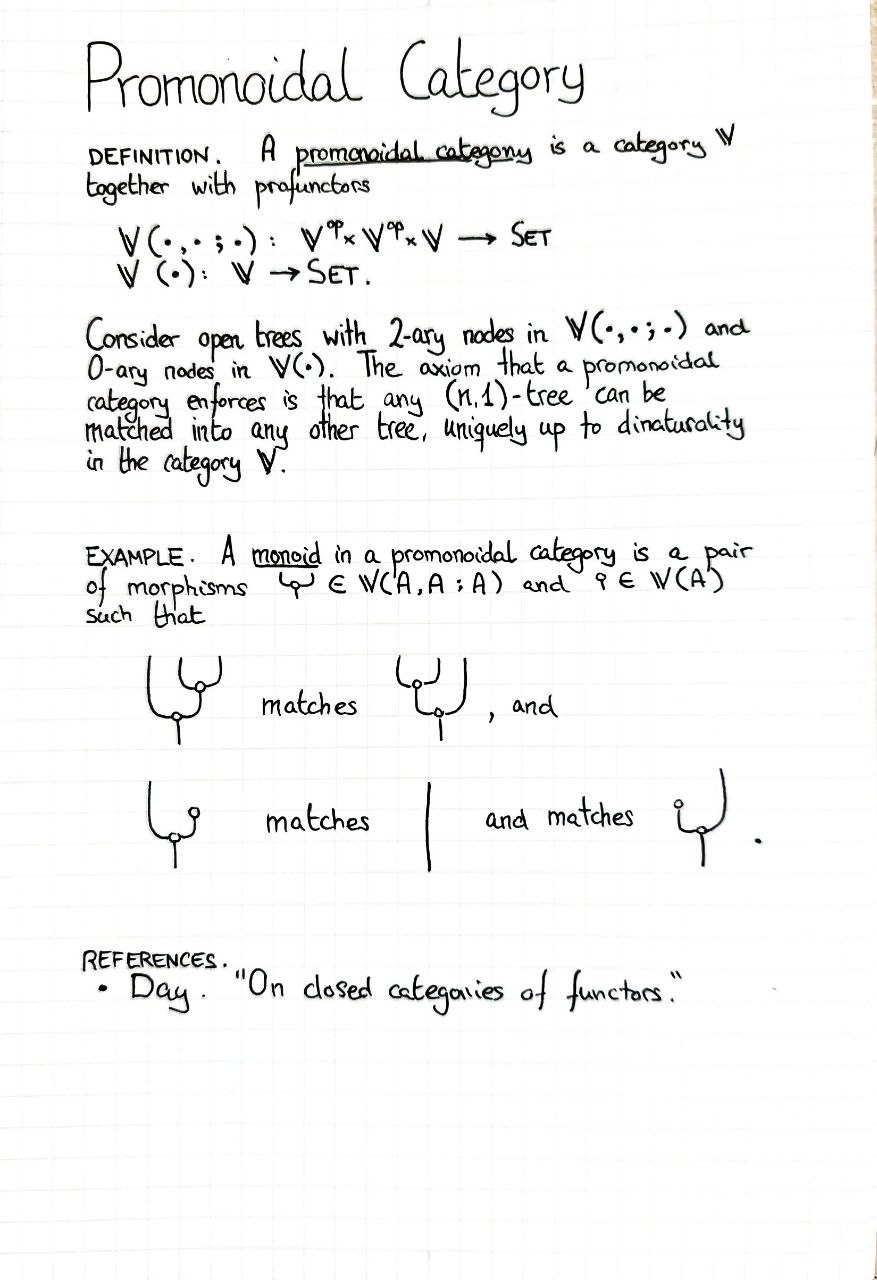 Promonoidal Category
DEFINITION. A promonoidal category is a category 𝕍
together with profunctors
𝕍(•,•;•): 𝕍ᵒᵖ×𝕍ᵒᵖ×𝕍 → SET
𝕍(•): 𝕍 → SET.
Consider open trees with 2-ary nodes in 𝕍(•,•;•) and
0-ary nodes in 𝕍(•). The axiom that a promonoidal
category enforces is that any (n,1)-tree can be
matched into any other tree, uniquely up to dinaturality
in the category 𝕍.
EXAMPLE. A monoid in a promonoidal category is a pair
of morphisms ∈ 𝕍(A,A;A) and ∈ 𝕍(A)
such that
matches , and
matches and matches .
REFERENCES.
• Day. "On closed categories of functors."